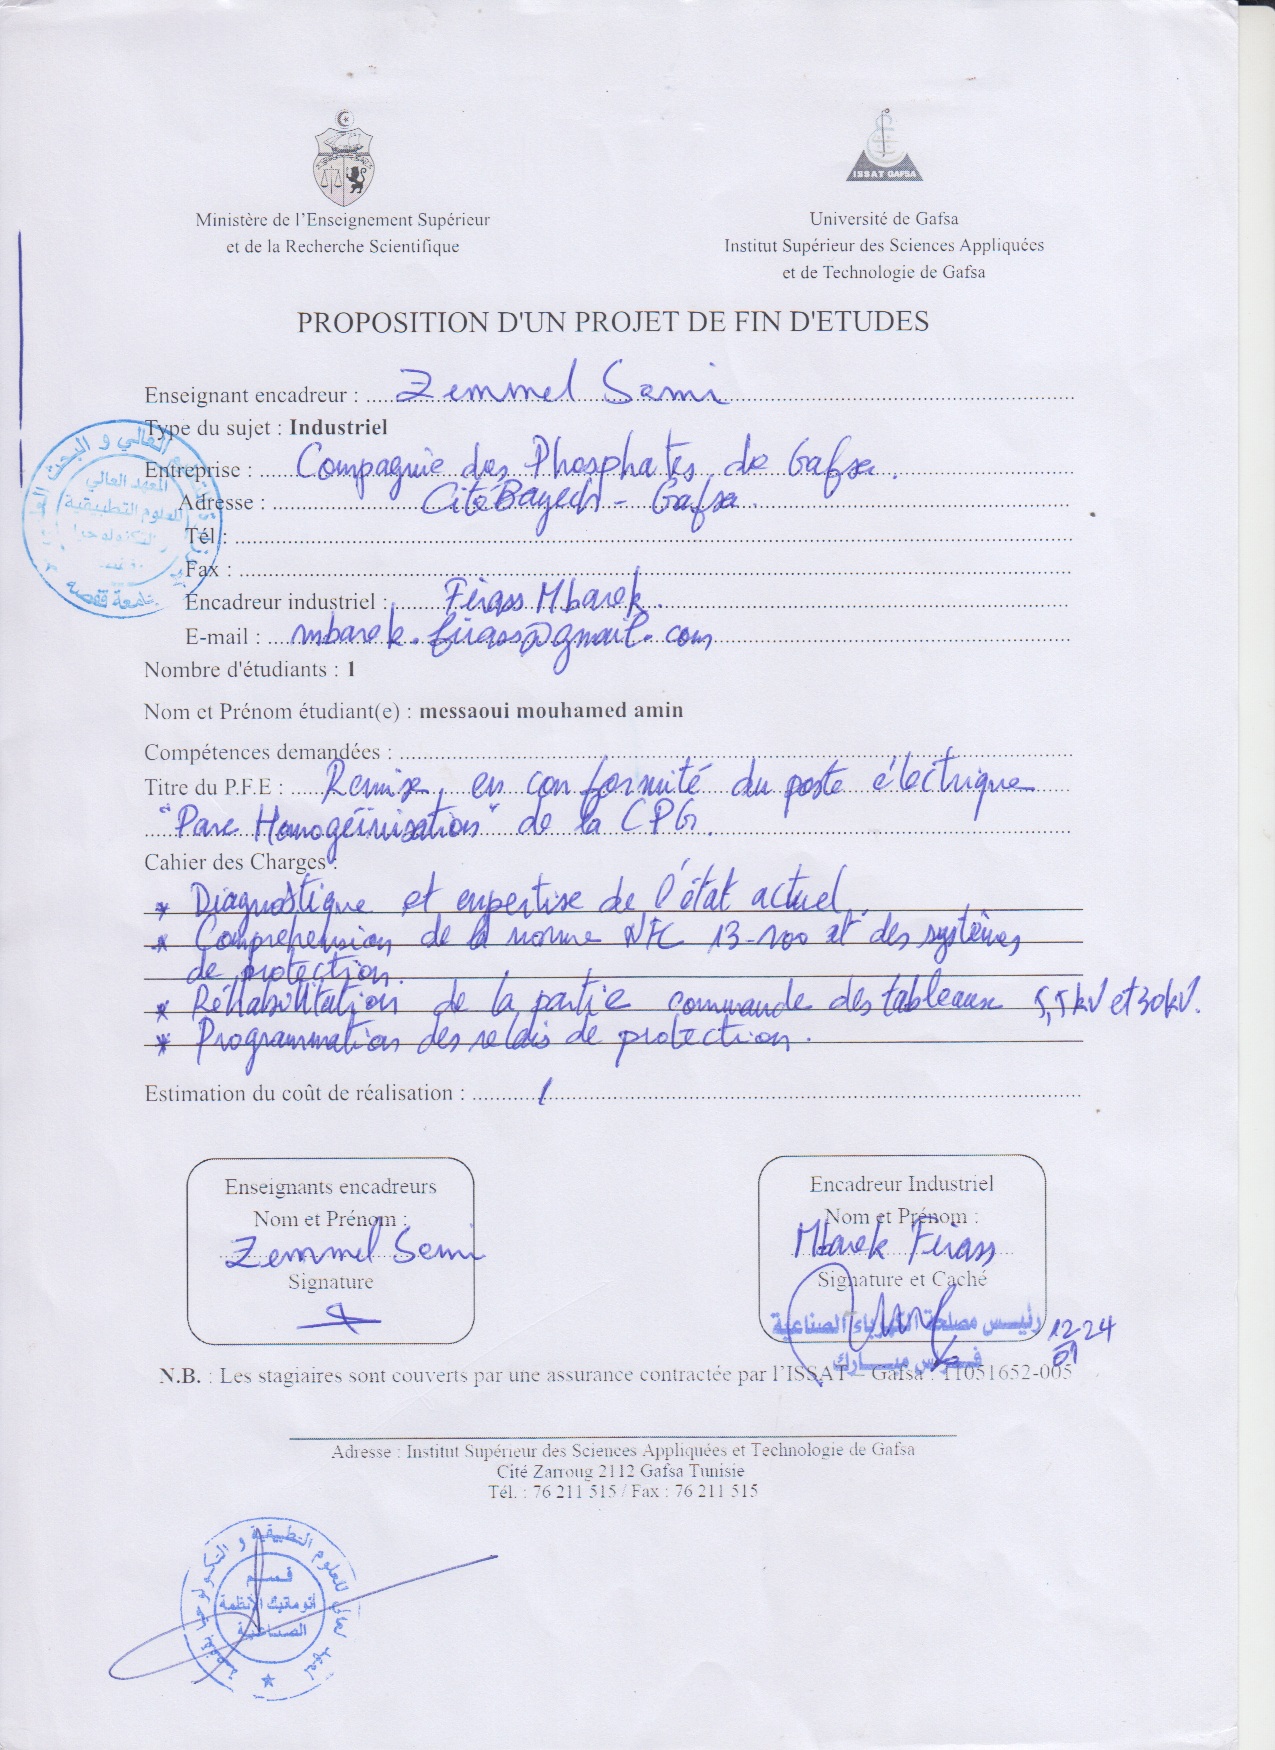 ISSAT GAFSA
Ministère de l'Enseignement Supérieur
et de la Recherche Scientifique
Université de Gafsa
Institut Supérieur des Sciences Appliquées
et de Technologie de Gafsa
PROPOSITION D'UN PROJET DE FIN D'ETUDES
Enseignant encadreur : Zemmel Sami
Type du sujet : Industriel
Entreprise : Compagnie des Phosphates de Gafsa.
Adresse : Cité Bayech - Gafsa.
Tél :
Fax :
Encadreur industriel : Firass Mbarek.
E-mail : mbarek.firass@gmail.com
Nombre d'étudiants : 1
Nom et Prénom étudiant(e) : messaoui mouhamed amin
Compétences demandées :
Titre du P.F.E : Remise en conformité du poste électrique
"Parc Homogéinisation" de la CPG.
Cahier des Charges :
* Diagnostique et expertise de l'état actuel.
* Comprehension de la norme NFC 13-100 et des systèmes
de protection.
* Réhabilitation de la partie commande des tableaux 5,5kV et 30kV.
* Programmation des relais de protection.
Estimation du coût de réalisation : /
Enseignants encadreurs
Nom et Prénom :
Zemmel Sami
Signature
Encadreur Industriel
Nom et Prénom :
Mbarek Firass
Signature et Caché
رئيس مصلحة الكهرباء الصناعية
فراس مبارك
12 24
01
N.B. : Les stagiaires sont couverts par une assurance contractée par l'ISSAT – Gafsa : 11051652-005
Adresse : Institut Supérieur des Sciences Appliquées et Technologie de Gafsa
Cité Zarroug 2112 Gafsa Tunisie
Tél. : 76 211 515 / Fax : 76 211 515
المعهد العالي
للعلوم التطبيقية
و التكنولوجيا
جامعة قفصة
قسم
أتوماتيك الأنظمة
الصناعية